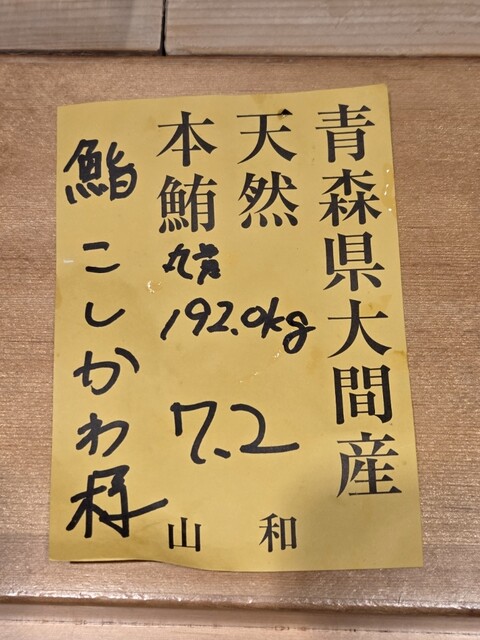 青森県大間産
天然
本鮪
192.0kg
7.2
鮨こしかわ様
山和